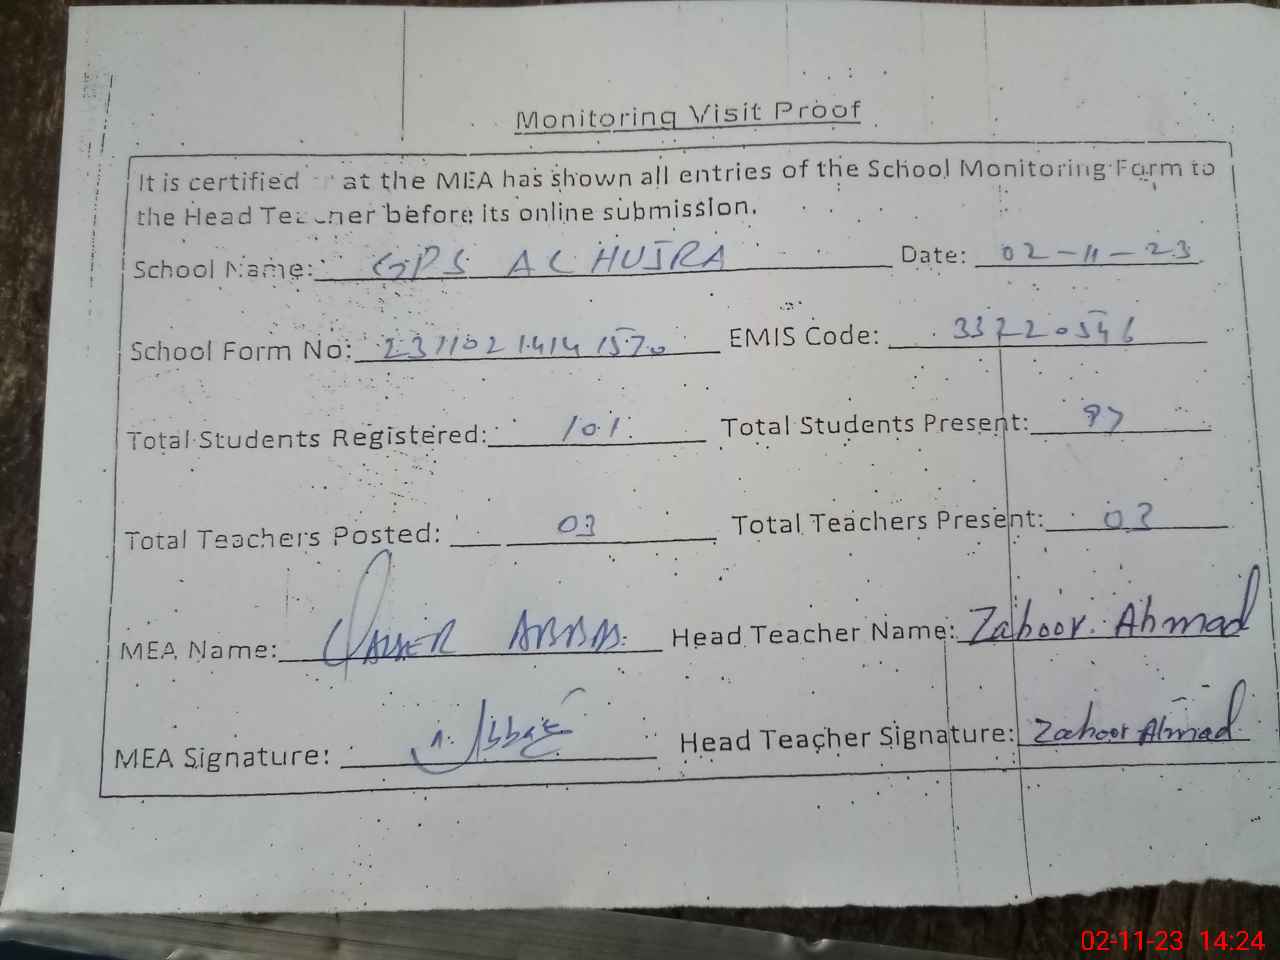 Monitoring Visit Proof
It is certified at the MEA has shown all entries of the School Monitoring Form to
the Head Teacher before its online submission.
School Name: GPS AL HUJRA Date: 02-11-23
School Form No: 23110214141570 EMIS Code: 33220546
Total Students Registered: 101 Total Students Present: 97
Total Teachers Posted: 03 Total Teachers Present: 03
MEA Name: ABBAS Head Teacher Name: Zahoor Ahmad
MEA Signature: Abbas Head Teacher Signature: Zahoor Ahmad
02-11-23 14:24